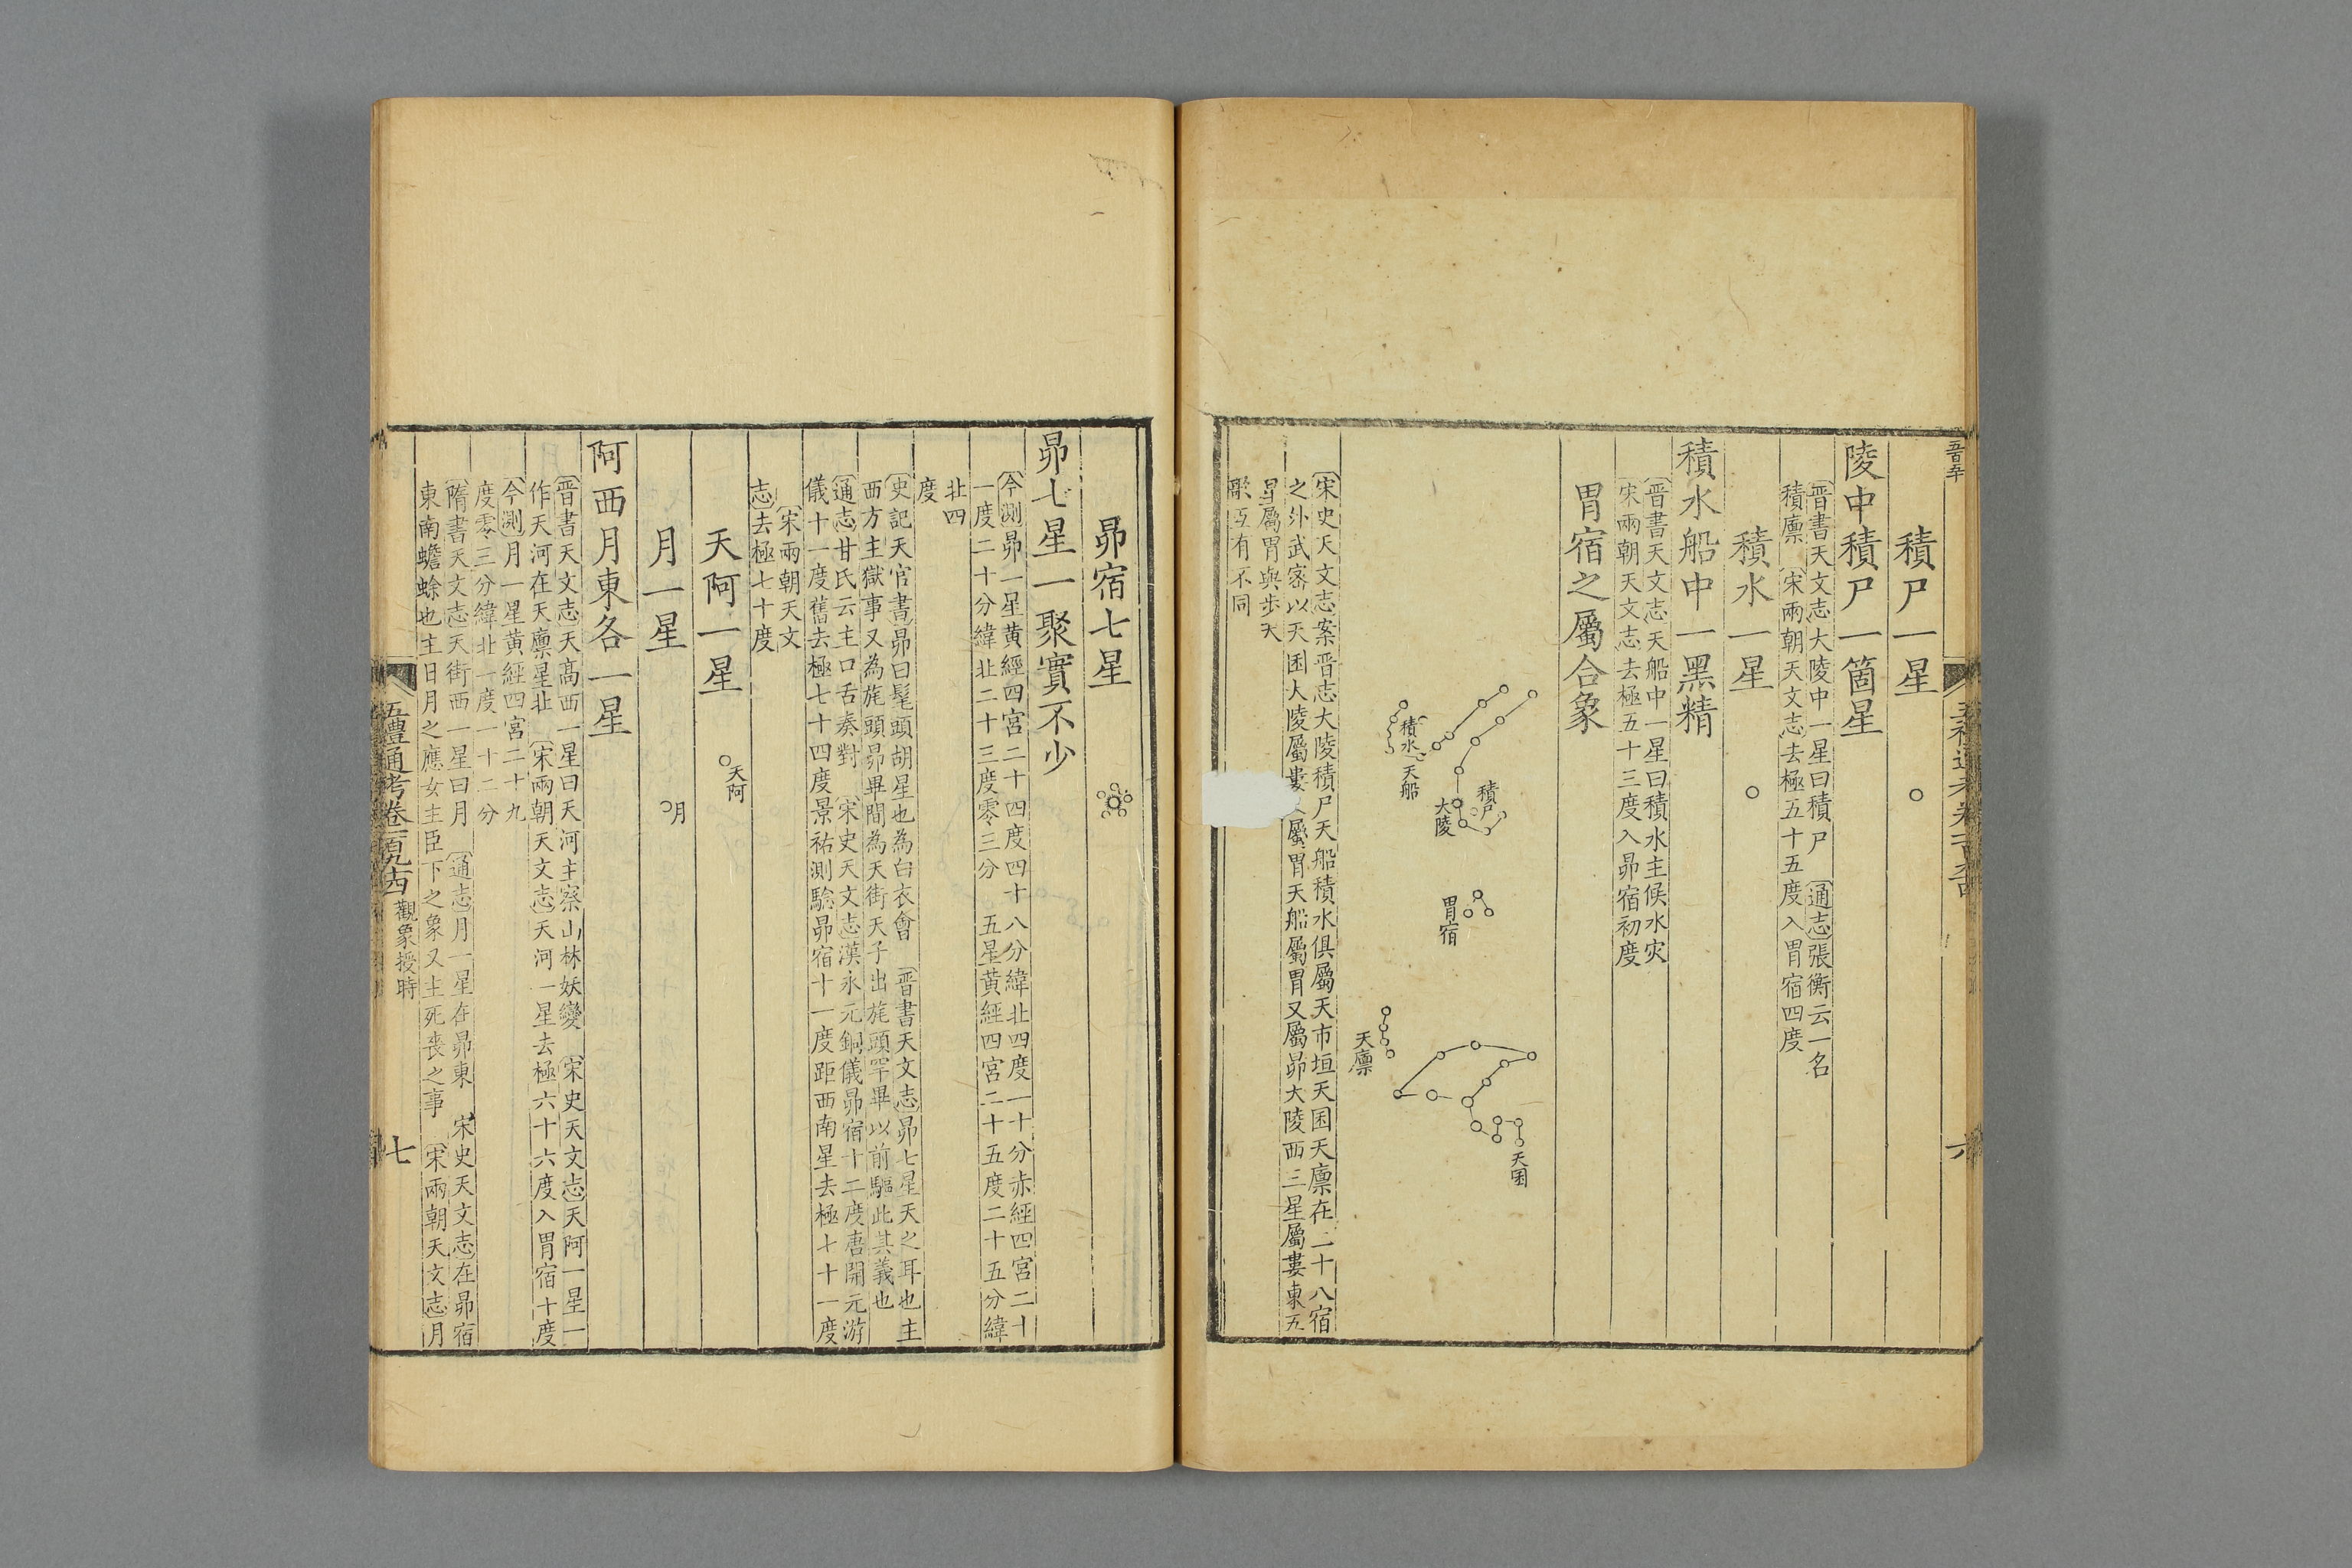 積尸一星
陵中積尸一箇星
晉書天文志大陵中一星曰積尸 通志張衡云一名
積廪 宋兩朝天文志去極五十五度入胃宿四度
積水一星
積水船中一黑精
晉書天文志天船中一星曰積水主候水灾
宋兩朝天文志去極五十三度入昴宿初度
胃宿之屬合象
積水
天船
積尸
大陵
胃宿
天廪
天囷
宋史天文志案晉志大陵積尸天船積水俱屬天市垣天囷天廪在二十八宿
之外武密以天囷大陵屬婁 屬胃天船屬胃又屬昴大陵西三星屬婁東五
星屬胃與步天
歌互有不同
六
昴宿七星
昴七星一聚實不少
今測昴一星黄經四宮二十四度四十八分緯北四度一十分赤經四宮二十
一度二十分緯北二十三度零三分 五星黄經四宮二十五度二十五分緯
北四
度
史記天官書昴曰髦頭胡星也為白衣會 晉書天文志昴七星天之耳也主
西方主獄事又為旄頭昴畢間為天街天子出旄頭罕畢以前驅此其義也
通志甘氏云主口舌奏對 宋史天文志漢永元銅儀昴宿十二度唐開元游
儀十一度舊去極七十四度景祐測驗昴宿十一度距西南星去極七十一度
宋兩朝天文
志去極七十度
天阿一星
天阿
月一星
月
阿西月東各一星
晉書天文志天高西一星曰天河主察山林妖變 宋史天文志天阿一星一
作天河在天廪星北 宋兩朝天文志天河一星去極六十六度入胃宿十度
今測月一星黄經四宮二十九
度零三分緯北一度一十二分
隋書天文志天街西一星曰月 通志月一星在昴東 宋史天文志在昴宿
東南蟾蜍也主日月之應女主臣下之象又主死喪之事 宋兩朝天文志月
五禮通考卷一百九十四 觀象授時
七